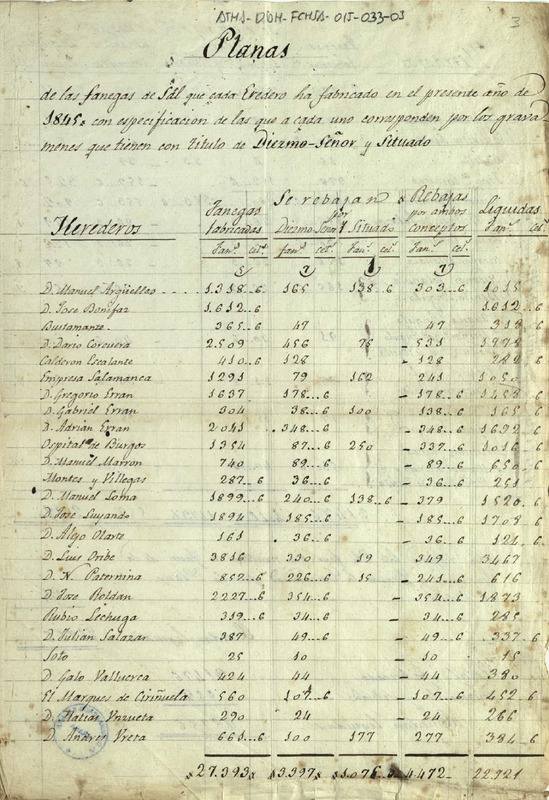 ATHA-DAH-FCHSA-015-033-03
3
Planas
de las fanegas de Sal que cada Eredero ha fabricado en el presente año de
1845. con especificacion de las que a cada uno corresponden por los grava-
menes que tienen con Titulo de Diezmo-Señor y Situado
Herederos Fanegas fabricadas Se rebajan por Rebajas por ambos conceptos Liquidas
Diezmo Señor Situado
Fan.s cel.s Fan.s cel.s Fan.s cel.s Fan.s cel.s Fan.s cel.s
D. Manuel Argüelles 1318..6 165 138..6 303..6 1015
D. Jose Bonifaz 1612..6 1612..6
Bustamante 365..6 47 47 318..6
D. Dario Corcuera 2509 456 75 531 1978
Calderon Escalante 410..6 128 128 282..6
Empresa Salamanca 1291 79 162 241 1050
D. Gregorio Erran 1637 178..6 178..6 1458..6
D. Gabriel Erran 304 38..6 100 138..6 165..6
D. Adrian Erran 2041 348..6 348..6 1692..6
Ospital de Burgos 1354 87..6 250 337..6 1016..6
D. Manuel Marron 740 89..6 89..6 650..6
Montes y Villegas 287..6 36..6 36..6 251
D. Manuel Loma 1899..6 240..6 138..6 379 1520..6
D. Jose Luyando 1894 185..6 185..6 1708..6
D. Alejo Olarte 161 36..6 36..6 124..6
D. Luis Oribe 3816 330 19 349 3467
D. N. Paternina 852..6 226..6 15 241..6 616
D. Jose Roldan 2227..6 354..6 354..6 1873
Rubio Lechuga 319..6 34..6 34..6 285
D. Julian Salazar 387 49..6 49..6 337..6
Soto 25 10 10 15
D. Galo Valluerca 424 44 44 380
El Marques de Ciriñuela 560 107..6 107..6 452..6
D. Matias Unzueta 290 24 24 266
D. Andres Ureta 661..6 100 177 277 384..6
27.393 3.397 1.075..6 4472 22.921